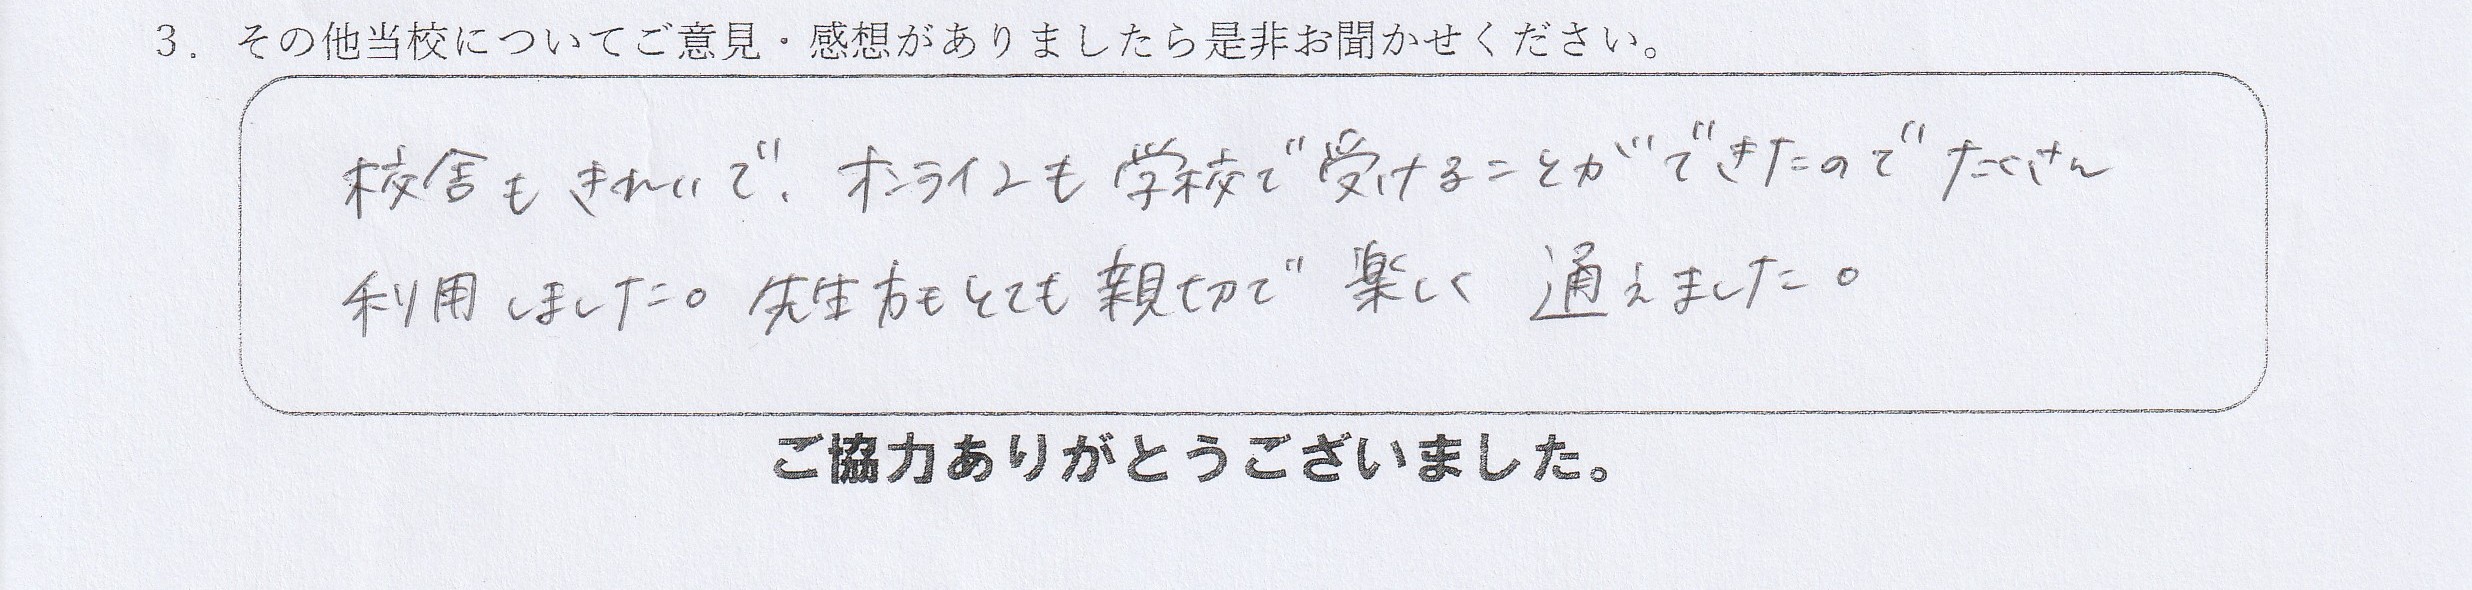 3. その他当校についてご意見・感想がありましたら是非お聞かせください。
校舎もきれいで、オンラインも学校で受けることができたのでたくさん
利用しました。先生方もとても親切で楽しく通えました。
ご協力ありがとうございました。